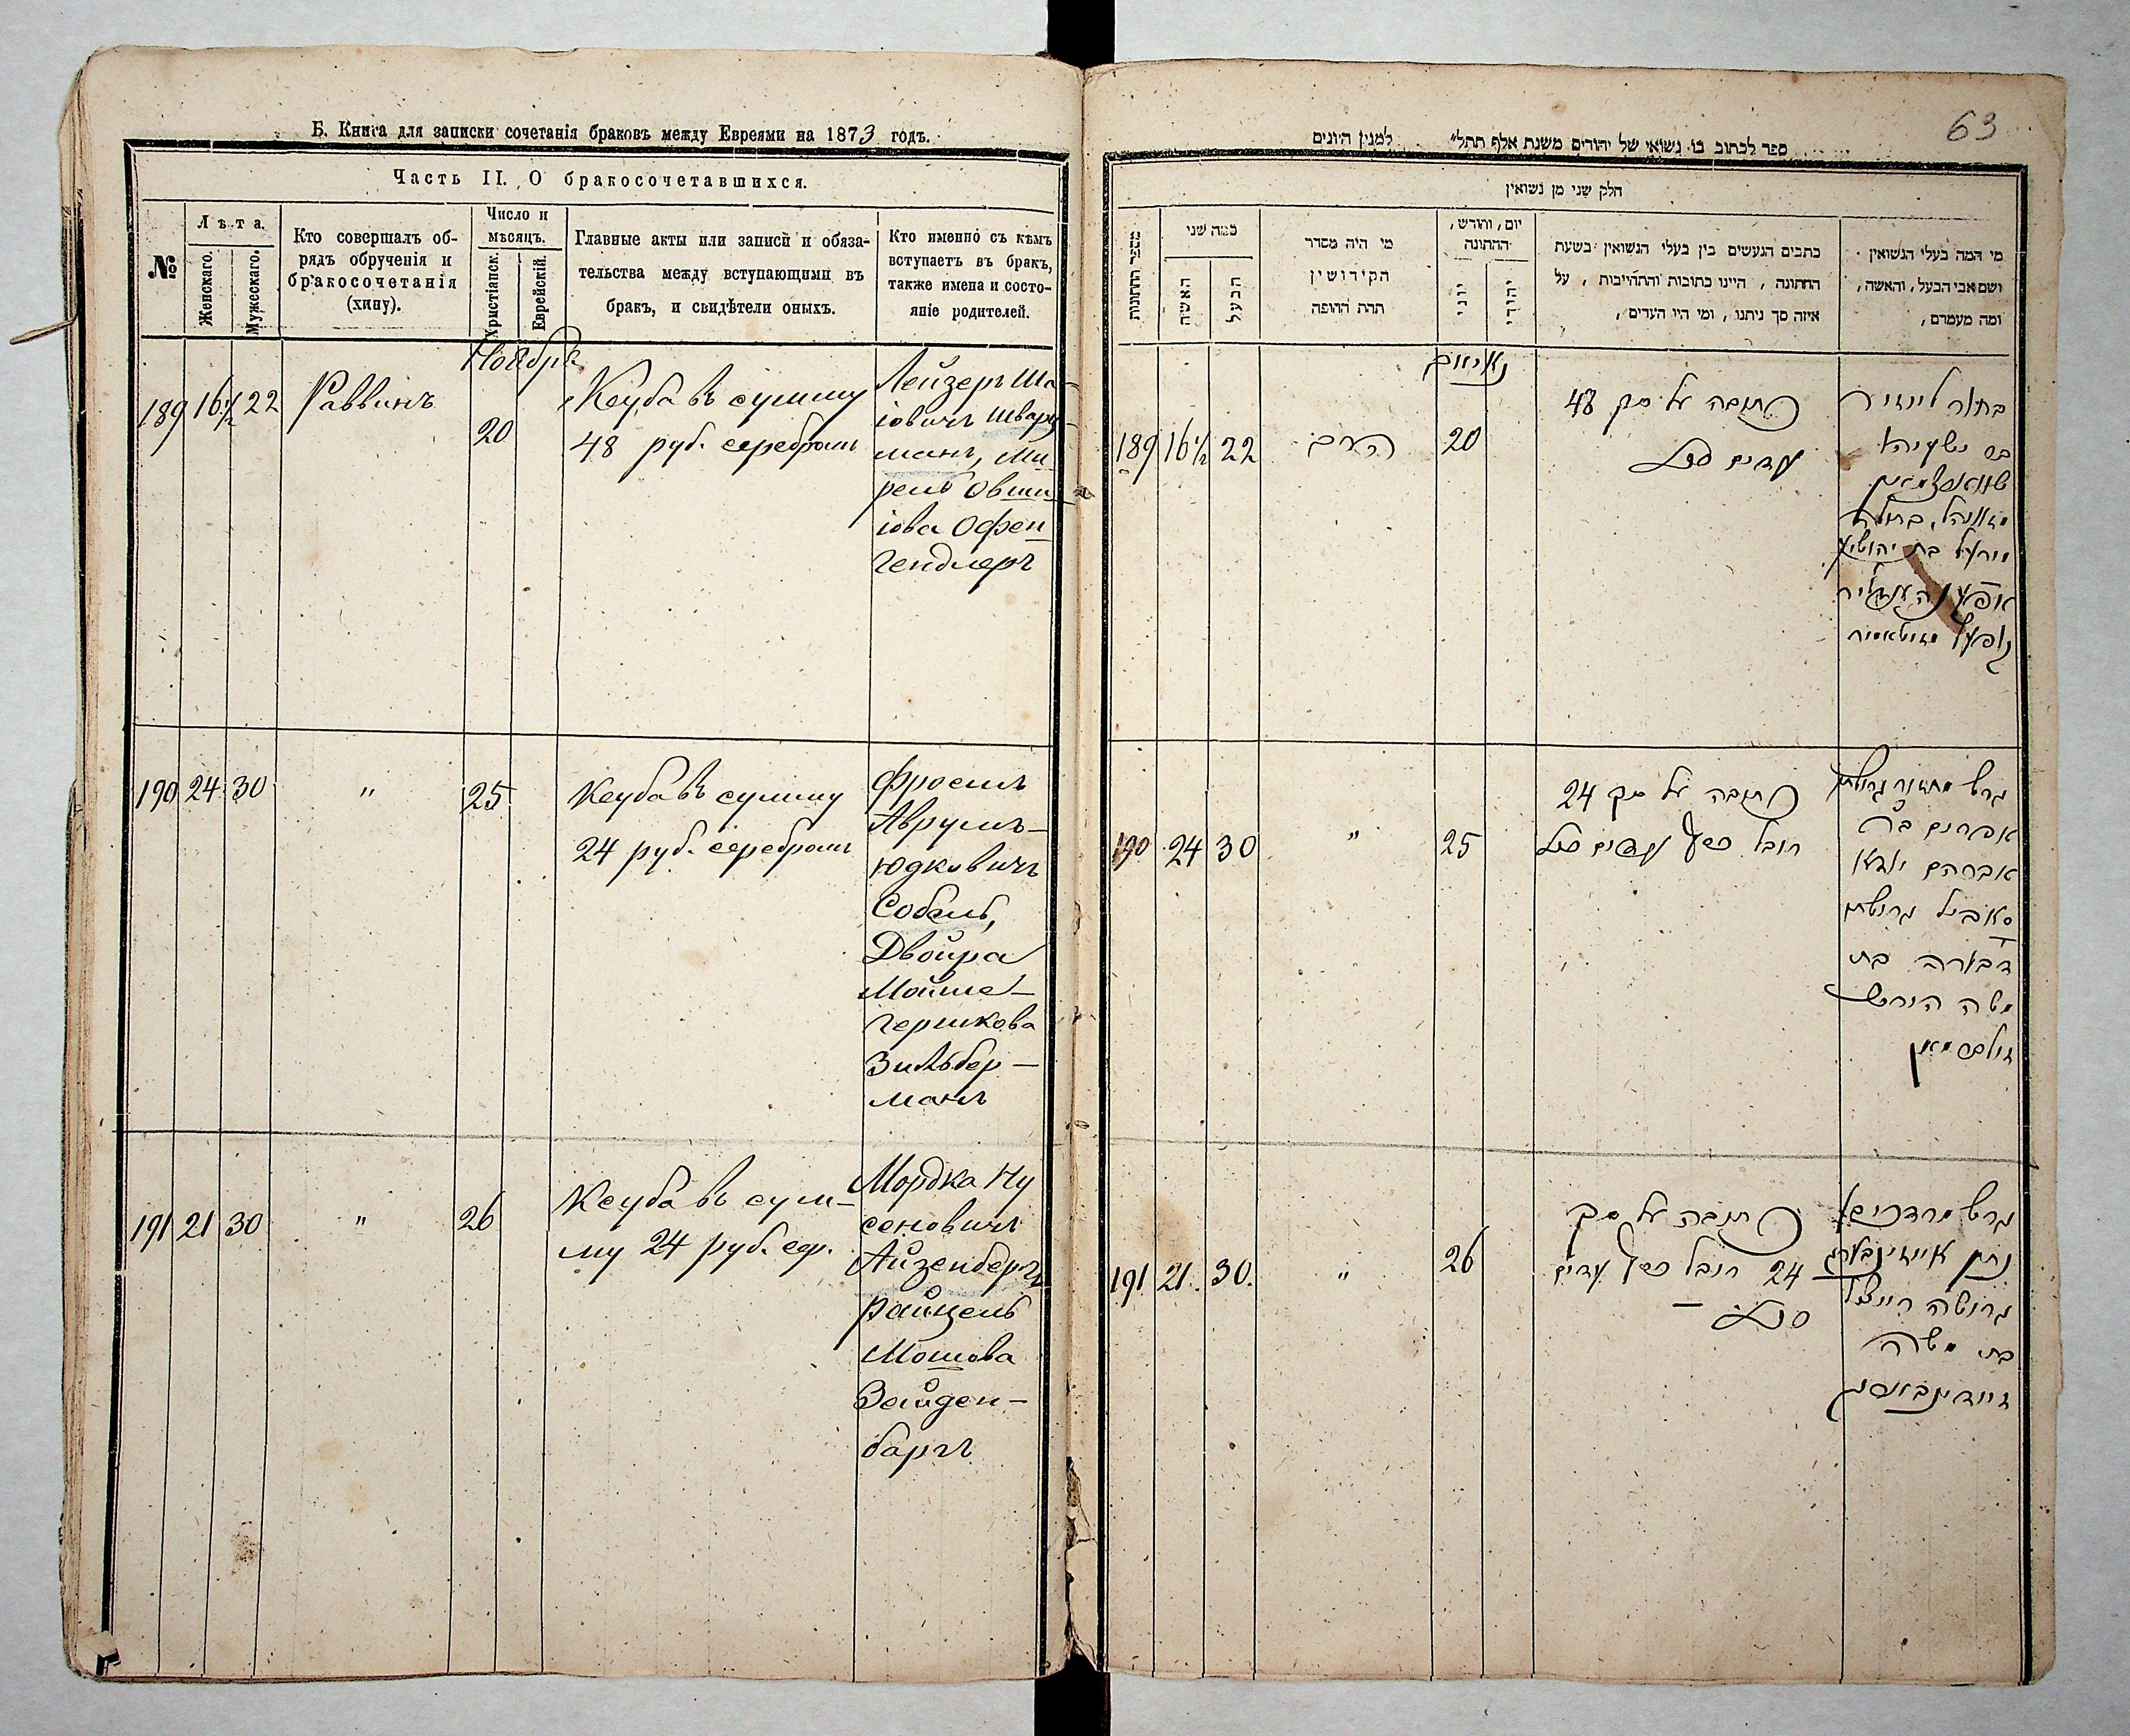 Б. Книга для записки сочетанія браковъ между Евреями на 1873 годъ.
Часть II. О бракосочетавшихся.
№
Лѣта.
Женскаго.
Мужескаго.
Кто совершалъ об-
рядъ обрученія и
бракосочетанія
(хипу).
Число и
мѣсяцъ.
Христіанск.
Еврейскій.
Главные акты или записи и обяза-
тельства между вступающими въ
бракъ, и свидѣтели оныхъ.
Кто именно съ кѣмъ
вступаетъ въ бракъ,
также имена и состо-
яніе родителей.
Ноябрь
189 16½ 22 Раввинъ
20
Ксуба въ сумму
48 руб. серебромъ
Лейзеръ Ша-
іовичъ Шварц-
манъ, Ми
рель Овши
іова Офен
гендлеръ
190 24 30 " 25
Ксуба въ сумму
24 руб. серебромъ
Фроемъ
Аврумъ-
Юдковичъ
Собель,
Двойра
Мойше-
Гершкова
Зильбер-
манъ
191 21 30 " 26
Ксуба въ сум-
му 24 руб. сер.
Мордка Ну
сеновичъ
Айзенбергъ
Райцель
Мошова
Зайден-
баргъ
63
ספר לכתוב בו נשואי של יהודים משנת אלף תתל״ למנין היונים
חלק שני מן נשואין
מספר החתונות
כמה שני
האשה
הבעל
מי היה מסדר
הקידושין
תחת החופה
יום, וחודש,
החתונה
יוני
יהודי
כתבים הנעשים בין בעלי הנשואין בשעת
החתונה, היינו כתובות והתחייבות, על
איזה סך ניתנו, ומי היו העדים,
מי המה בעלי הנשואין
ושם אבי הבעל, והאשה,
ומה מעמדם,
189 16½ 22 הרב 20
כתובה על סך 48
בחור לייזיר
בן ישעיהו
שווארצמאן
בתולה
מירעל בת יהושע
190 24 30 " 25
כתובה על סך 24
רובל כסף
אפרים ב״ר
אברהם יודא
סאביל
דבורה בת
משה הירש
זילבערמאן
191 21. 30. " 26
כתובה על סך
24 רובל כסף עדים
גרוש מרדכי
נתן אייזינבערג
גרושה רייצל
בת משה